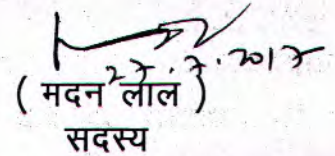 27.7.2017
( मदन लाल )
सदस्य